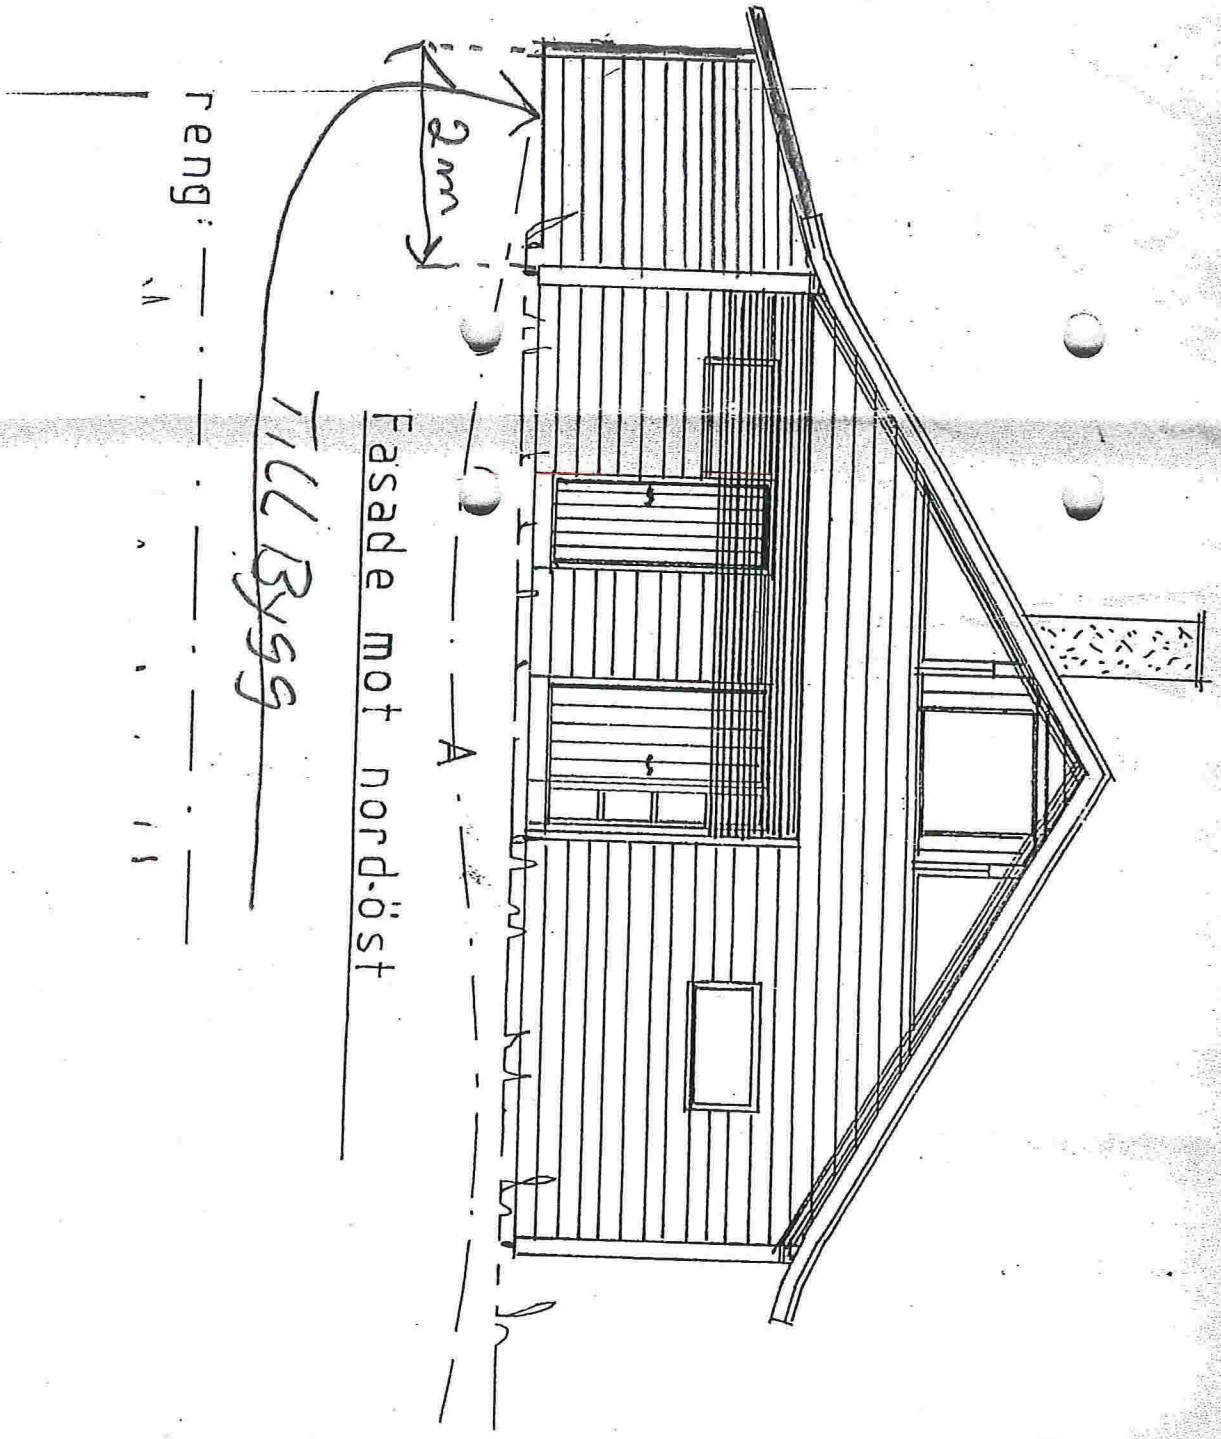 2m
A
Fasade mot nord-öst
Till Bygg
reng: